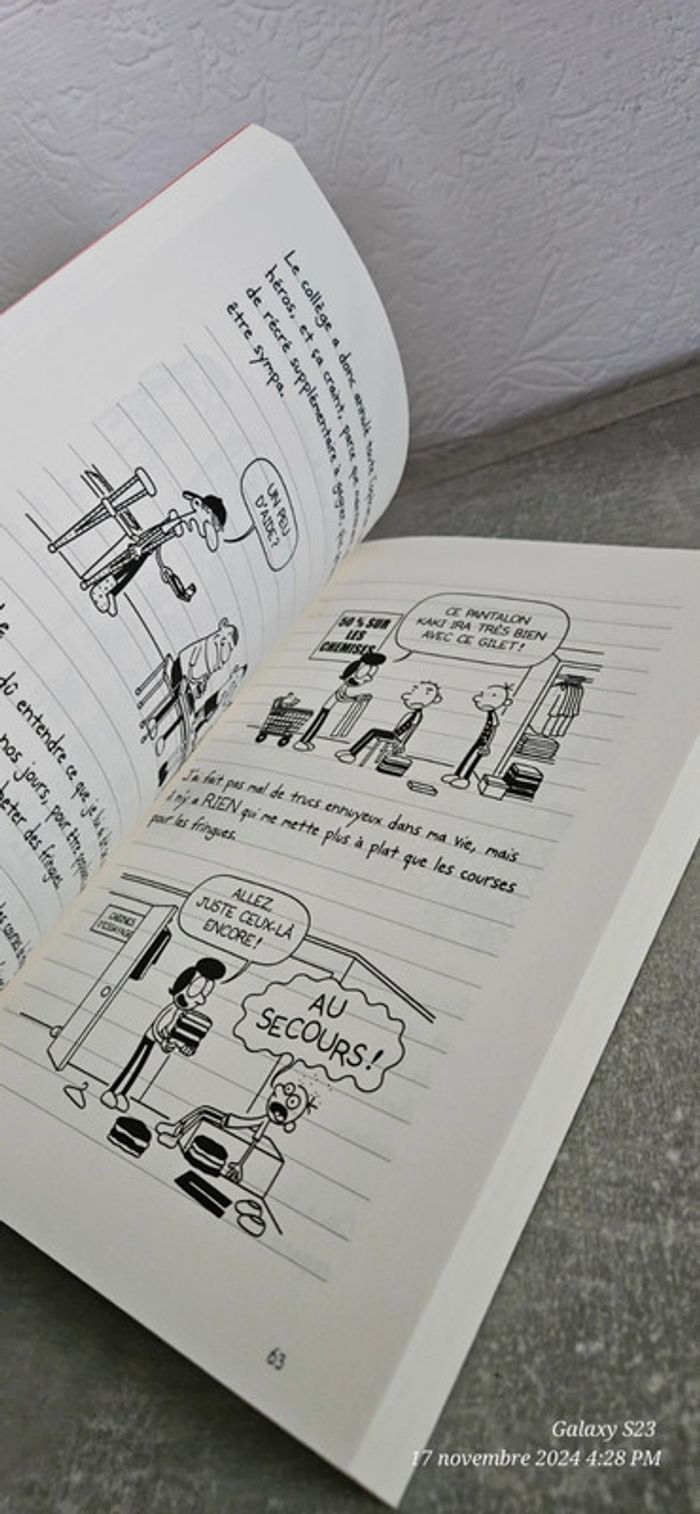 Le collège a donc annulé toute
héros, et ça craint, parce que
de récré supplémentaire à gagner,
être sympa.
UN PEU
D'AIDE?
dû entendre ce que je
nos jours, pour être
des fringues.
50 % SUR
LES
CHEMISES
CE PANTALON
KAKI IRA TRÈS BIEN
AVEC CE GILET!
J'ai fait pas mal de trucs ennuyeux dans ma vie, mais
il n'y a RIEN qui me mette plus à plat que les courses
pour les fringues.
CABINES
D'ESSAYAGE
ALLEZ
JUSTE CEUX-LÀ
ENCORE!
AU
SECOURS!
63
Galaxy S23
17 novembre 2024 4:28 PM